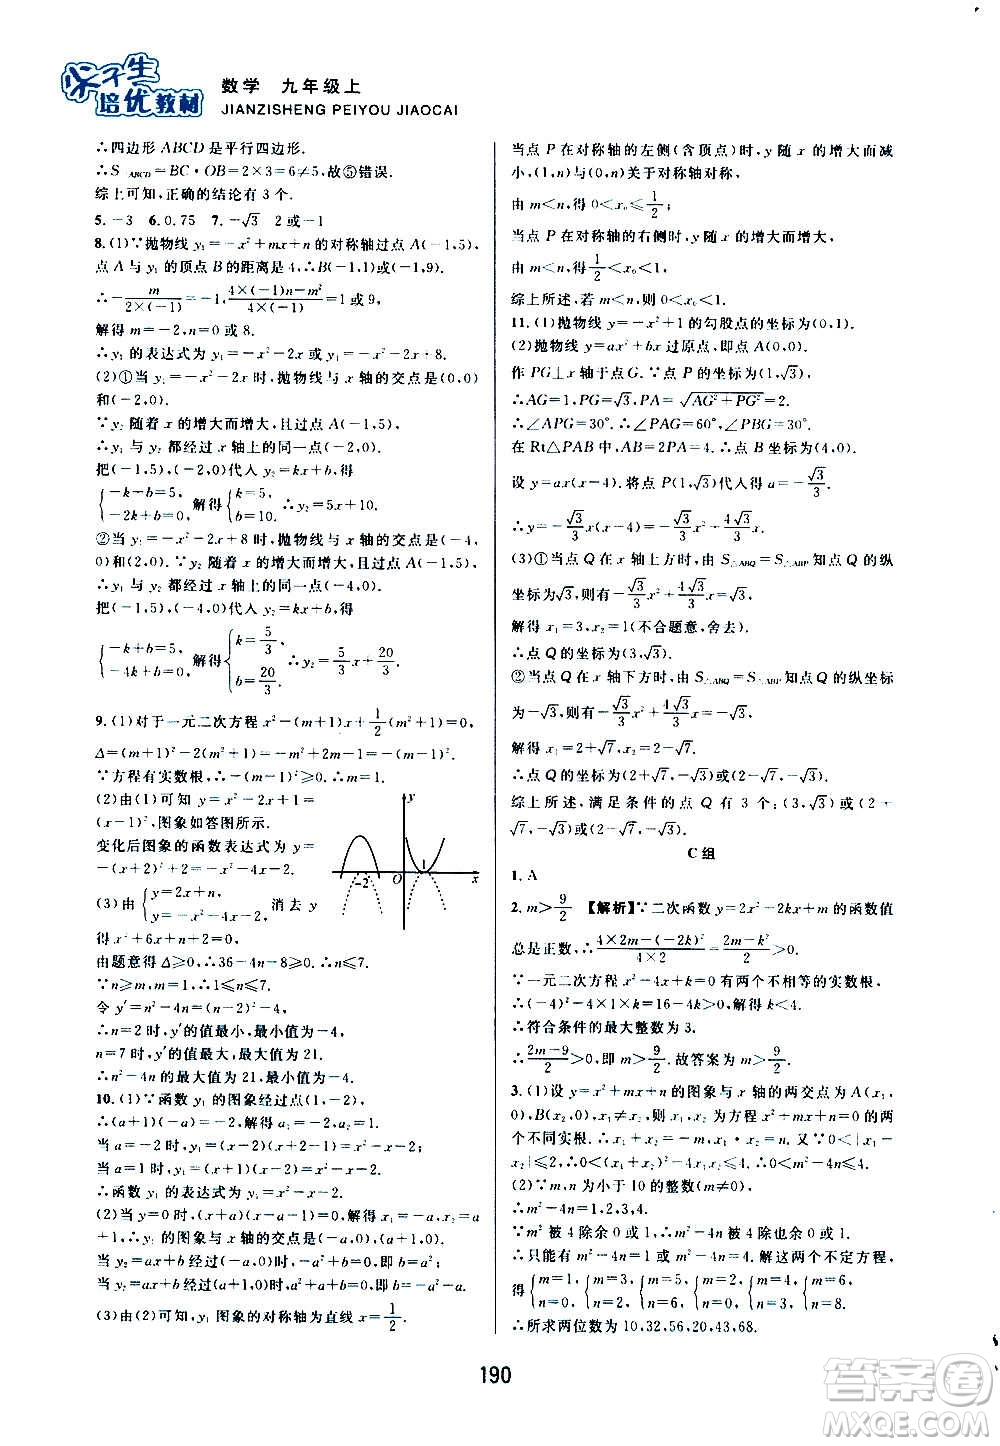 尖子生
培优教材
数学 九年级上
JIANZISHENG PEIYOU JIAOCAI
∴四边形 ABCD 是平行四边形.
∴S▱ABCD=BC·OB=2×3=6≠5,故⑤错误.
综上可知,正确的结论有 3 个.
5.-3 6.0.75 7.-√3 2 或-1
8.(1)∵抛物线 y₁=-x²+mx+n 的对称轴过点 A(-1,5),
点 A 与 y₁ 的顶点 B 的距离是 4,∴B(-1,1)或(-1,9).
∴-m/(2×(-1))=-1,(4×(-1)n-m²)/(4×(-1))=1 或 9,
解得 m=-2,n=0 或 8.
∴y₁ 的表达式为 y₁=-x²-2x 或 y₁=-x²-2x+8.
(2)①当 y₁=-x²-2x 时,抛物线与 x 轴的交点是(0,0)
和(-2,0).
∵y₂ 随着 x 的增大而增大,且过点 A(-1,5),
∴y₁ 与 y₂ 都经过 x 轴上的同一点(-2,0).
把(-1,5),(-2,0)代入 y₂=kx+b,得
{-k+b=5, -2k+b=0, 解得{k=5, b=10. ∴y₂=5x+10.
②当 y₁=-x²-2x+8 时,抛物线与 x 轴的交点是(-4,
0)和(2,0).∵y₂ 随着 x 的增大而增大,且过点 A(-1,5),
∴y₁ 与 y₂ 都经过 x 轴上的同一点(-4,0).
把(-1,5),(-4,0)代入 y₂=kx+b,得
{-k+b=5, -4k+b=0, 解得{k=5/3, b=20/3. ∴y₂=5/3x+20/3.
9.(1)对于一元二次方程 x²-(m+1)x+1/2(m²+1)=0,
Δ=(m+1)²-2(m²+1)=-m²+2m-1=-(m-1)².
∵方程有实数根,∴-(m-1)²≥0.∴m=1.
(2)由(1)可知 y=x²-2x+1=
(x-1)²,图象如答图所示.
变化后图象的函数表达式为 y=
-(x+2)²+2=-x²-4x-2.
(3)由{y=2x+n, y=-x²-4x-2, 消去 y
得 x²+6x+n+2=0.
由题意得 Δ≥0,∴36-4n-8≥0.∴n≤7.
∵n≥m,m=1,∴1≤n≤7.
令 y′=n²-4n=(n-2)²-4,
∴n=2 时,y′的值最小,最小值为-4,
n=7 时,y′的值最大,最大值为 21.
∴n²-4n 的最大值为 21,最小值为-4.
10.(1)∵函数 y₁ 的图象经过点(1,-2),
∴(a+1)(-a)=-2,解得 a₁=-2,a₂=1.
当 a=-2 时,y₁=(x-2)(x+2-1)=x²-x-2;
当 a=1 时,y₁=(x+1)(x-2)=x²-x-2.
∴函数 y₁ 的表达式为 y₁=x²-x-2.
(2)当 y=0 时,(x+a)(x-a-1)=0,解得 x₁=-a,x₂=a
+1,∴y₁ 的图象与 x 轴的交点是(-a,0),(a+1,0).
当 y₂=ax+b 经过(-a,0)时,-a²+b=0,即 b=a²;
当 y₂=ax+b 经过(a+1,0)时,a²+a+b=0,即 b=-a²-a.
(3)由(2)可知,y₁ 图象的对称轴为直线 x=1/2.
y
-2
O
1
x
当点 P 在对称轴的左侧(含顶点)时,y 随 x 的增大而减
小,(1,n)与(0,n)关于对称轴对称,
由 m<n,得 0<x₀≤1/2;
当点 P 在对称轴的右侧时,y 随 x 的增大而增大,
由 m<n,得1/2<x₀<1.
综上所述,若 m<n,则 0<x₀<1.
11.(1)抛物线 y=-x²+1 的勾股点的坐标为(0,1).
(2)抛物线 y=ax²+bx 过原点,即点 A(0,0).
作 PG⊥x 轴于点 G.∵点 P 的坐标为(1,√3),
∴AG=1,PG=√3,PA=√(AG²+PG²)=2.
∴∠APG=30°,∠PAG=60°,∠PBG=30°.
在 Rt△PAB 中,AB=2PA=4.∴点 B 坐标为(4,0).
设 y=ax(x-4).将点 P(1,√3)代入得 a=-√3/3.
∴y=-√3/3x(x-4)=-√3/3x²+4√3/3x.
(3)①当点 Q 在 x 轴上方时,由 S△ABQ=S△ABP知点 Q 的纵
坐标为√3,则有-√3/3x²+4√3/3x=√3,
解得 x₁=3,x₂=1(不合题意,舍去).
∴点 Q 的坐标为(3,√3).
②当点 Q 在 x 轴下方时,由 S△ABQ=S△ABP知点 Q 的纵坐标
为-√3,则有-√3/3x²+4√3/3x=-√3,
解得 x₁=2+√7,x₂=2-√7.
∴点 Q 的坐标为(2+√7,-√3)或(2-√7,-√3).
综上所述,满足条件的点 Q 有 3 个:(3,√3)或(2+
√7,-√3)或(2-√7,-√3).
C 组
1.A
2.m>9/2 【解析】∵二次函数 y=2x²-2kx+m 的函数值
总是正数,∴(4×2m-(-2k)²)/(4×2)=(2m-k²)/2>0.
∵一元二次方程 x²-4x+k=0 有两个不相等的实数根,
∴(-4)²-4×1×k=16-4k>0,解得 k<4.
∴符合条件的最大整数为 3.
∴(2m-9)/2>0,即 m>9/2.故答案为 m>9/2.
3.(1)设 y=x²+mx+n 的图象与 x 轴的两交点为 A(x₁,
0),B(x₂,0),x₁≠x₂,则 x₁,x₂ 为方程 x²+mx+n=0 的两
个不同实根.∴x₁+x₂=-m,x₁·x₂=n.又∵0<|x₁-
x₂|≤2,∴0<(x₁+x₂)²-4x₁x₂≤4.∴0<m²-4n≤4.
(2)∵m,n 为小于 10 的整数(m≠0),
∴m²-4n=1,2,3,4.
∵m² 被 4 除余 0 或 1,∴m²-4n 被 4 除也余 0 或 1.
∴只能有 m²-4n=1 或 m²-4n=4.解这两个不定方程,
得{m=1, n=0, {m=3, n=2, {m=5, n=6, {m=2, n=0, {m=4, n=3, {m=6, n=8.
∴所求两位数为 10,32,56,20,43,68.
190
答案圈
MXQE.COM